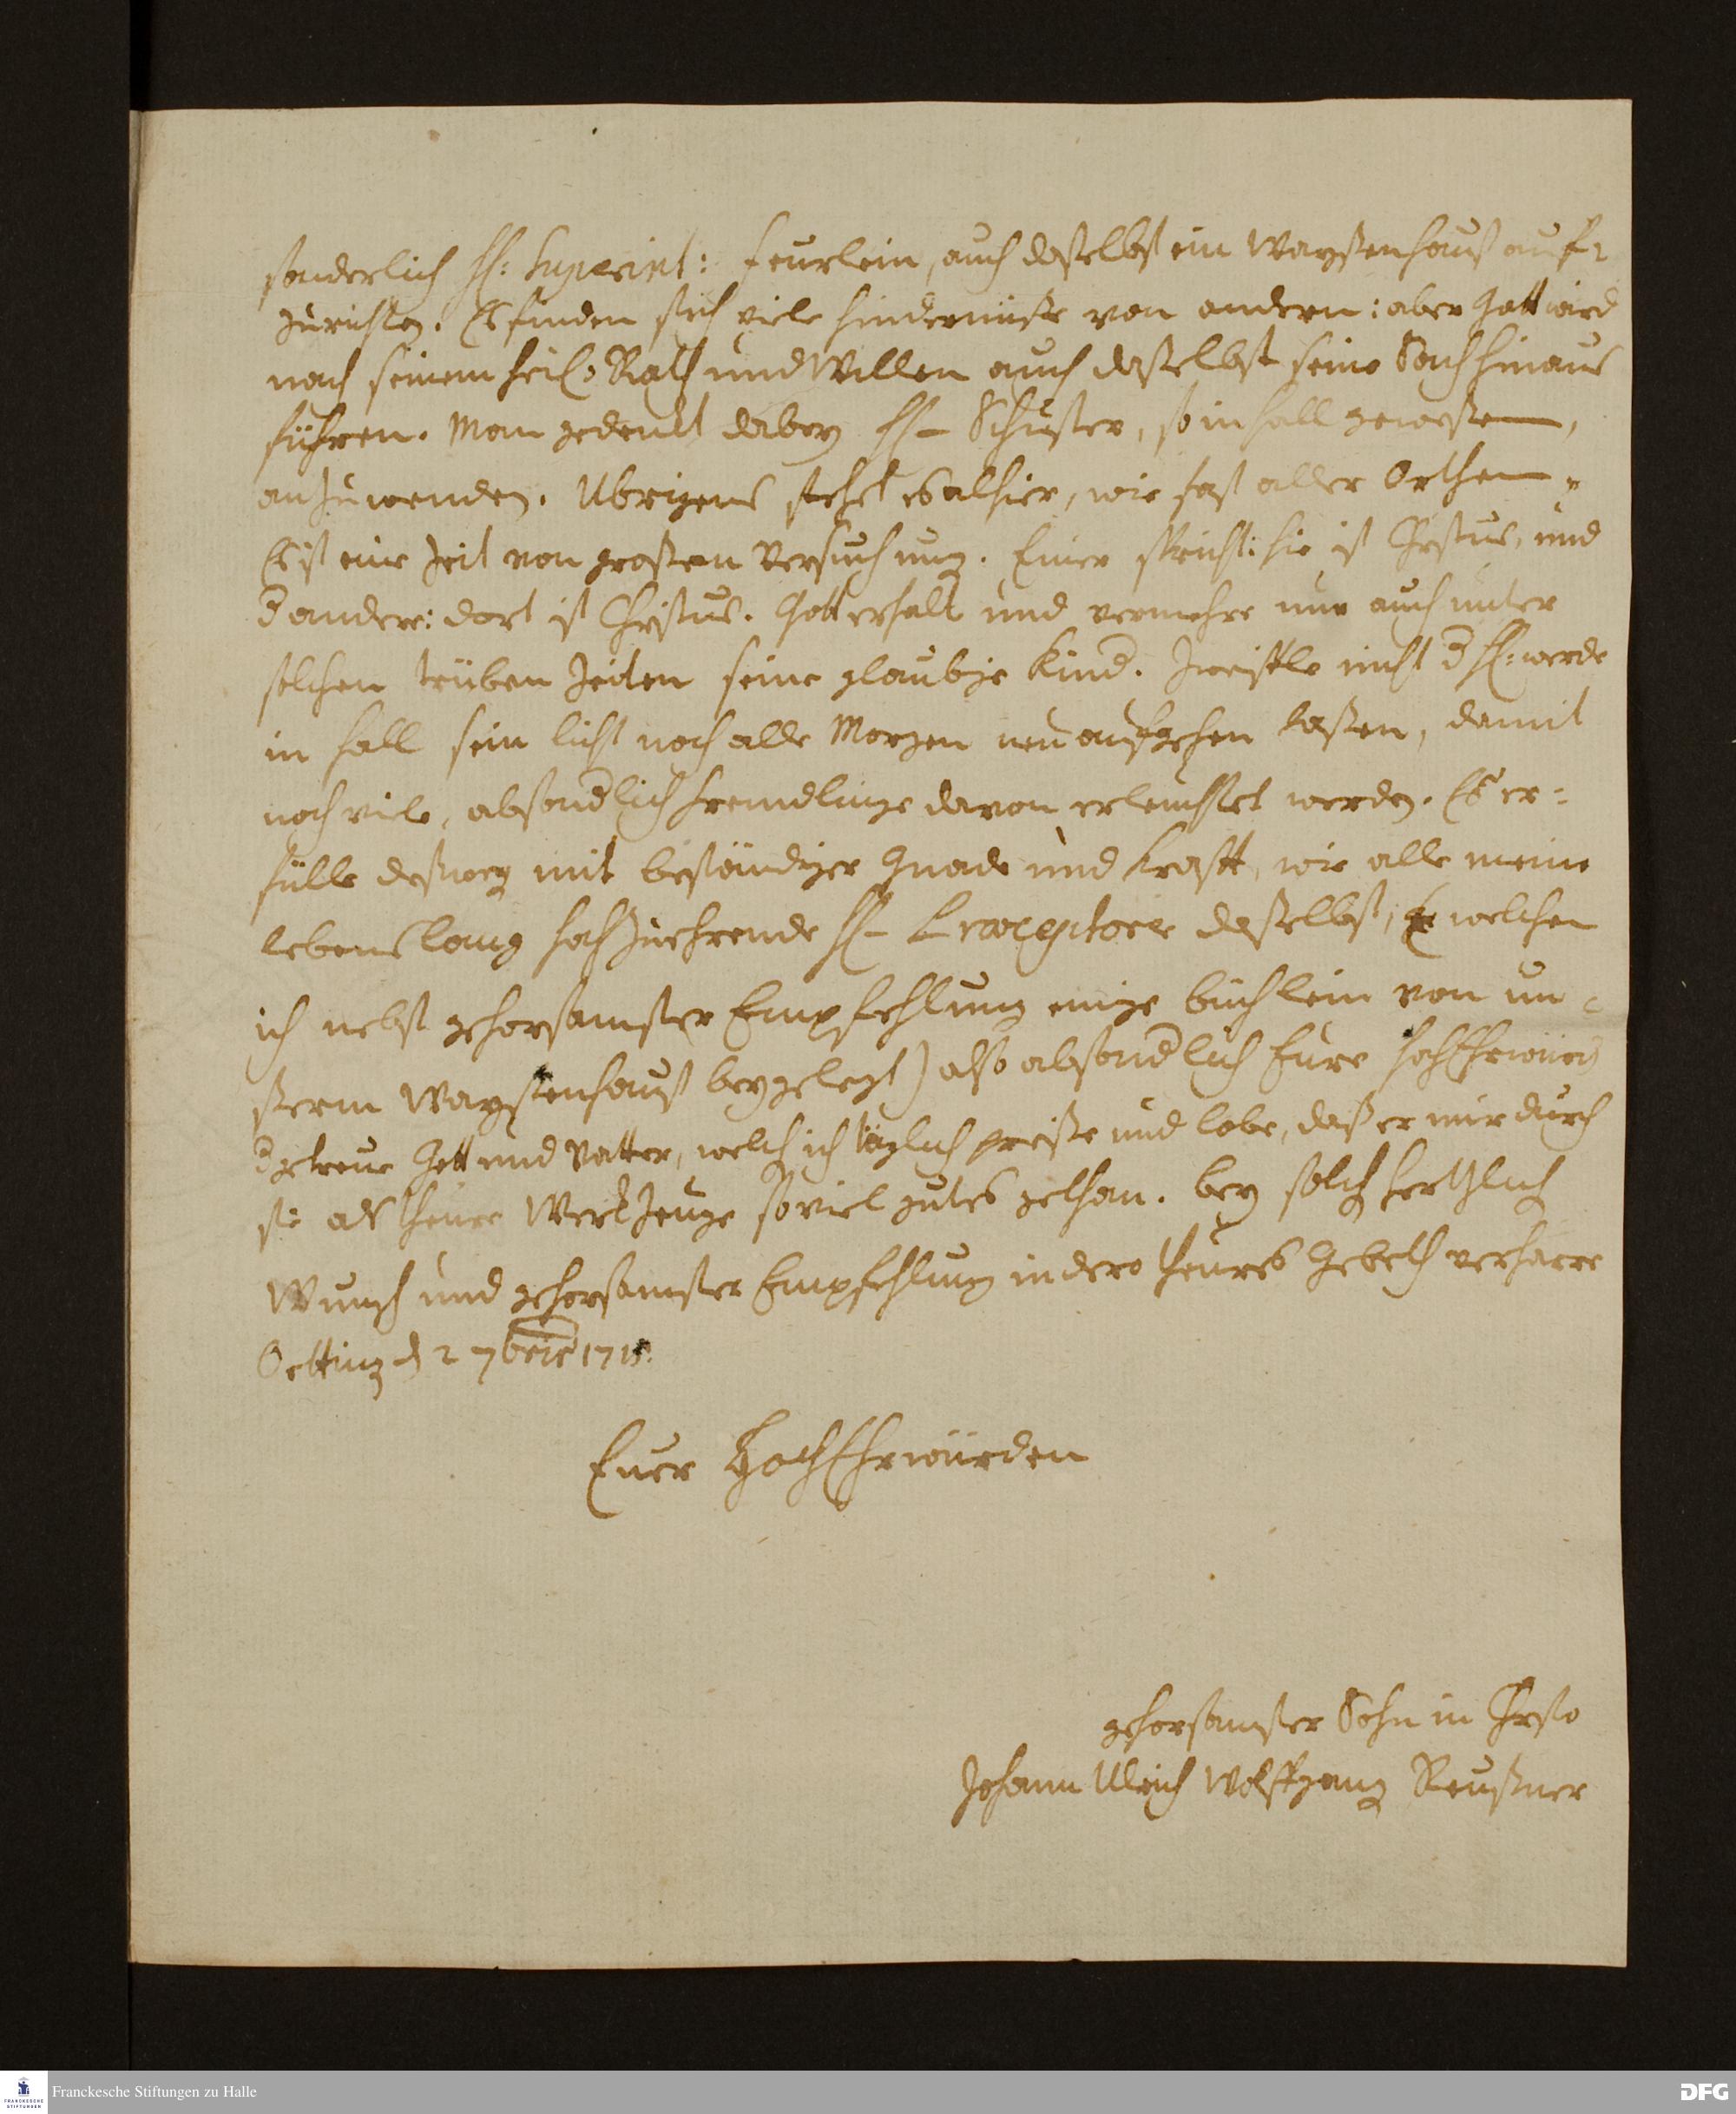 sonderlich H: Superint: Feurlein, auch daselbst ein Waysenhauß auf-
zurichten. Es finden sich viele hindernüße von andern: aber Gott wird
nach seinem heil. Rath und Willen auch daselbst seine Sach hinaus
führen. Man gedenckt dabey H. Schuster, so in Hall gewesen,
anzuwenden. Ubrigens stehet es alhier, wie fast aller Orthen.
Es ist eine Zeit von großen Versuchung. Einer spricht: hie ist Christus, und
d andere: dort ist Christus. Gott erhalt und vermehre nur auch unter
solchen trüben Zeiten seine glaubige Kind. Zweiffle nicht d H: werde
in Hall sein licht noch alle Morgen neu aufgehen laßen, damit
noch viele, absondlich fremdlinge davon erleuchtet werden. Es er-
fülle deßweg mit beständiger Gnade und Krafft, wie alle meine
lebenslang hochzuehrende H. Præceptores daselbst, welchen
ich nebst gehorsamster Empfehlung einige büchlein von un-
serm Waysenhauß beygelegt) also absondlich Eure HochEhrwürd
d getreue Gott und Vatter, welch ich täglich preiße und lobe, daß er mir durch
sie als theure Werckzeuge soviel gutes gethan. bey solch hertzlich
Wunsch und gehorsamster Empfehlung in dero theures Gebeth verharre
Oetting d 2 7bris 1715.
Euer HochEhrwürden
gehorsamster Sohn in Christo
Johann Ulrich Wolffgang Reußner
Franckesche Stiftungen zu Halle
FRANCKESCHE STIFTUNGEN
DFG